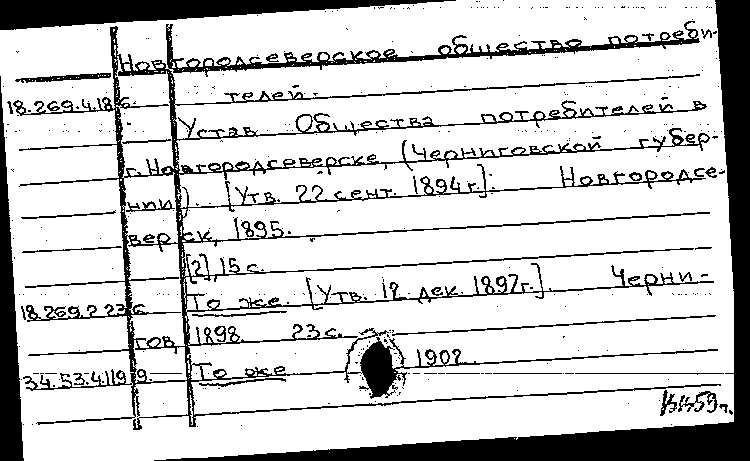 Новгородсеверское общество потреби-
18.269.4.186. телей.
Устав Общества потребителей в
г. Новгородсеверске, (Черниговской губер-
нии). [Утв. 22 сент. 1894 г.]. Новгородсе-
верск, 1895.
[2], 15 с.
18.269.2.236. То же. [Утв. 12 дек. 1897г.]. Черни-
гов, 1898. 23 с.
34.53.4.1199. То же 1902.